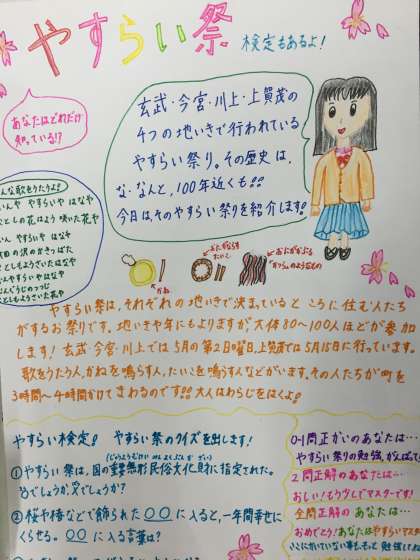 やすらい祭
検定もあるよ!
あなたはどれだけ
知っている!?
玄武・今宮・川上・上賀茂の
4つの地いきで行われている
やすらい祭り。その歴史は、
な・なんと、100年近くも!!
今日は、そのやすらい祭りを紹介します!
んな歌をうたうよ!
いんや やすらいや はなや
としの花はよう 咲いた花や
いん やすらいや はなや
田の沢のかきつばた
としもようさいたはなや
んややすらいや はなや
としもようさいた花や
かね
たいこ
やすらい祭は、それぞれの地いきで決まっているところに住む人たち
がするお祭りです。地いきや年にもよりますが、大体80〜100人ほどが参加
します!玄武・今宮・川上では5月の第2日曜日、上賀茂では5月15日に行っています。
歌をうたう人、かねを鳴らす人、たいこを鳴らす人などがいます。その人たちが町を
3時間〜4時間かけてまわるのです!!大人はわらじをはくよ!
やすらい検定! やすらい祭のクイズを出します!
①やすらい祭は、国の重要無形民俗文化財に指定された。
○でしょうか、×でしょうか?
②桜や椿などで飾られた〇〇に入ると、一年間幸せに
くらせる。〇〇に入る言葉は?
0~1問正かいのあなたは…
やすらい祭りの勉強、がんばって
2問正解のあなたは…
おしい!もう少しでマスターです!
全問正解のあなたは…
おめでとう!あなたはやすらいマスター